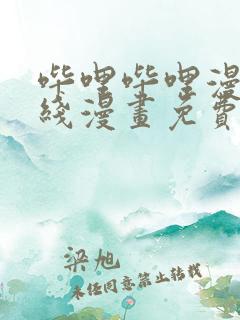 哔哩哔哩漫
綫漫畫免費
梁旭
未经同意禁止转载